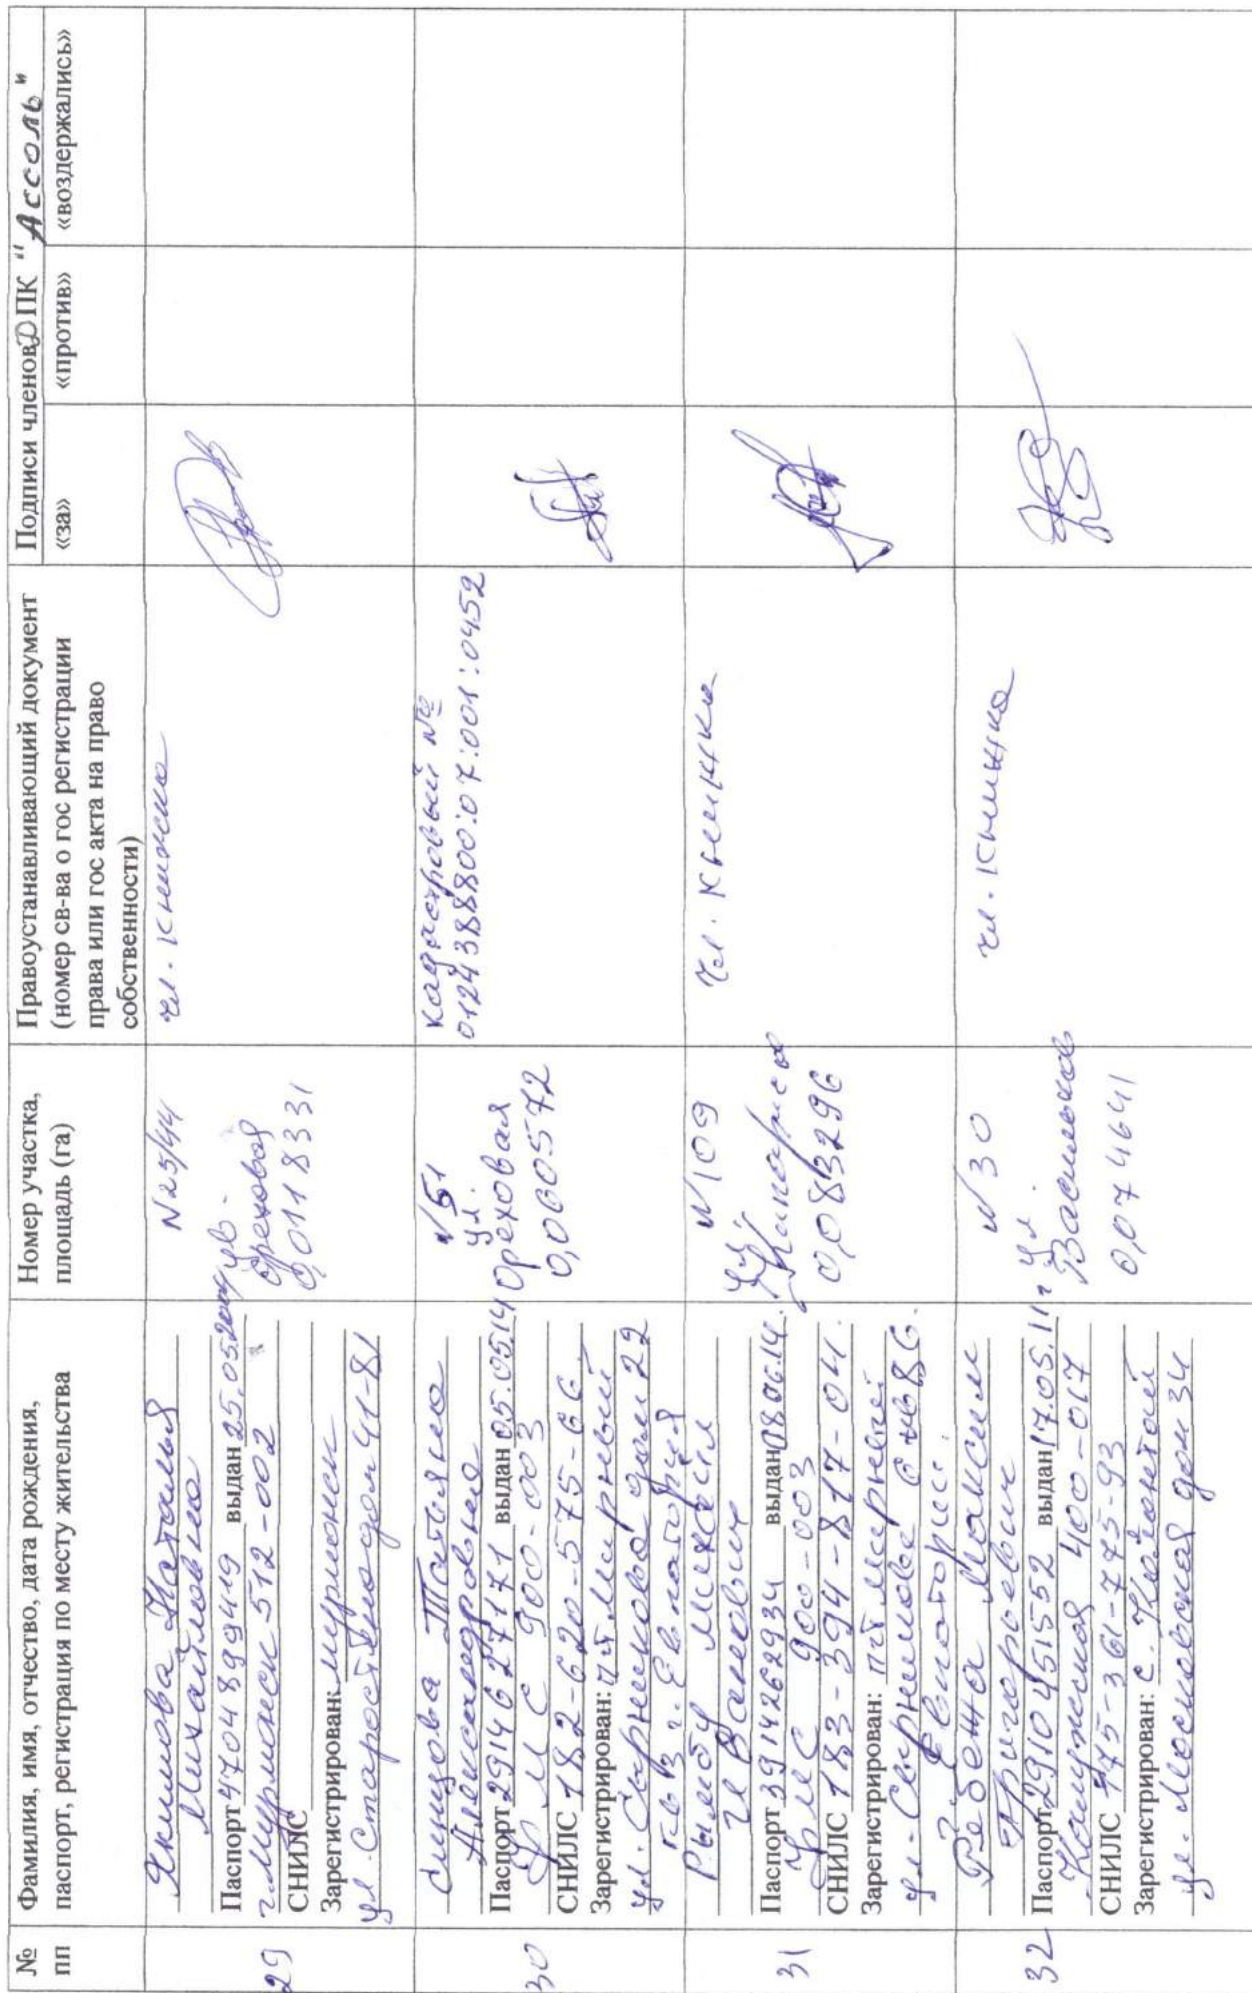 № пп
Фамилия, имя, отчество, дата рождения, паспорт, регистрация по месту жительства
Номер участка, площадь (га)
Правоустанавливающий документ (номер св-ва о гос регистрации права или гос акта на право собственности)
Подписи членов ДПК "Ассоль"
«за»
«против»
«воздержались»
29
Якимова Наталья
Михайловна
Паспорт 4704899419 выдан 25.05.2004
г. Мурманск 512-002
СНИЛС
Зарегистрирован: Мурманск
ул. Старостина дом 41-81
N 25/44
ул.
Ореховая
0,0118331
чл. книжка
30
Синцова Татьяна
Александровна
Паспорт 2914627171 выдан 05.05.14
УФМС 900-003
СНИЛС 182-620-575-66
Зарегистрирован: пгт Мирный
ул. Сырникова дом 22
кв 3 г. Евпатория
№ 51
ул.
Ореховая
0,060572
кадастровый №
0124388800:07:001:0452
31
Михаил
Иванович
Паспорт 3914262934 выдан 08.06.14.
УФМС 900-003
СНИЛС 183-394-817-04.
Зарегистрирован: пгт Мирный
ул. Сырникова 6 кв 86.
г. Евпатория
N 109
ул.
0,083296
чл. книжка
32
Ребенко Максим
Григорьевич
Паспорт 2910451552 выдан 17.05.11г
Калужская 400-017
СНИЛС
Зарегистрирован: с.
ул. Московская дом 34
N 30
ул.
0,074641
чл. книжка